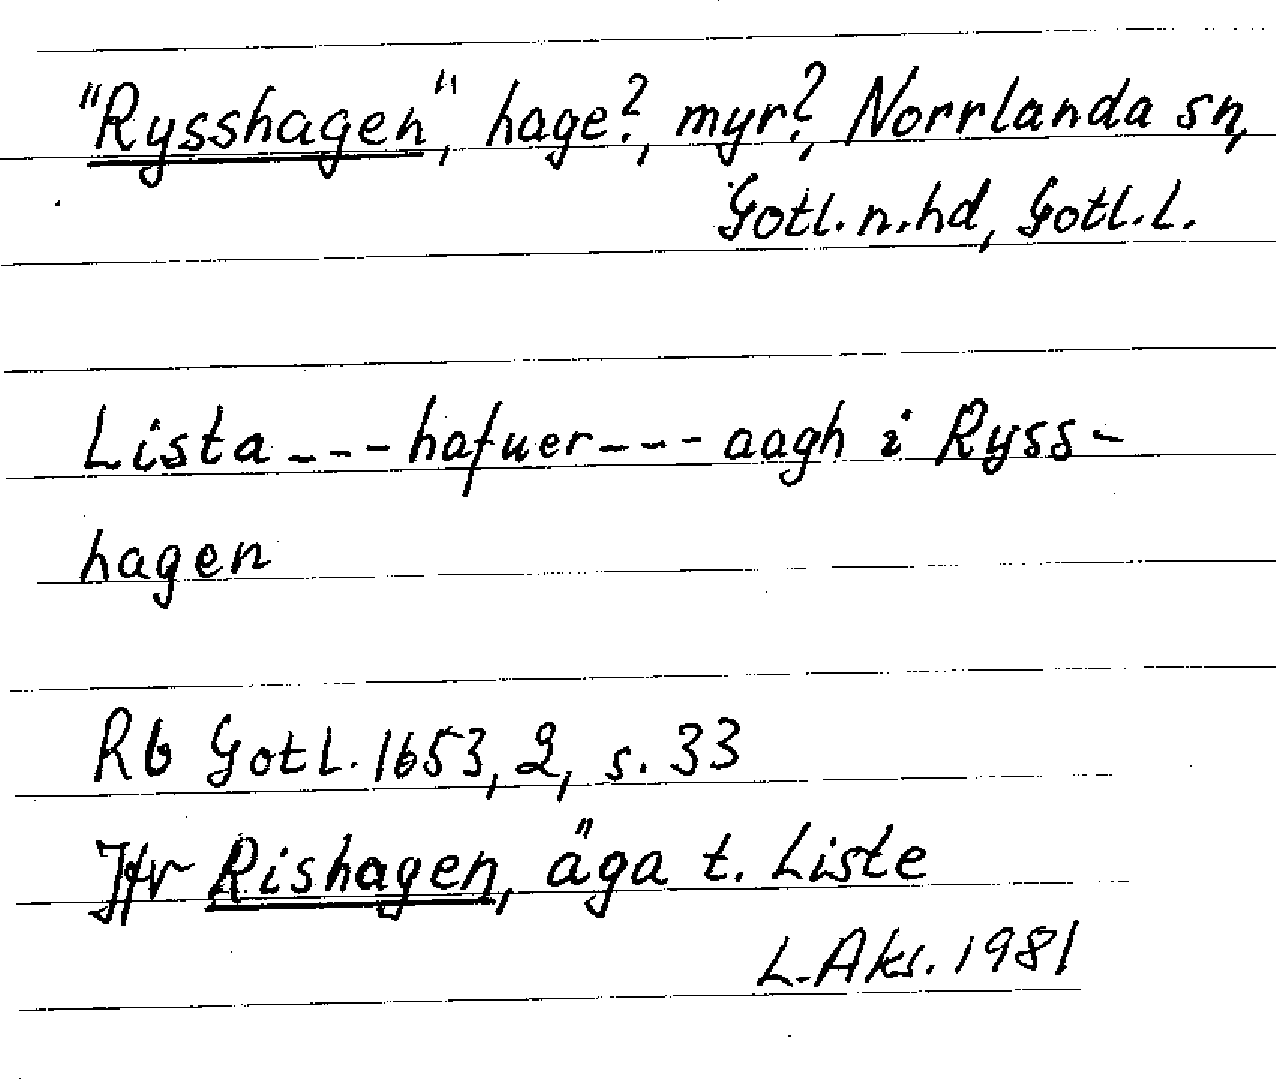 "Rysshagen", hage?, myr?, Norrlanda sn,
Gotl. n. hd, Gotl. L.
Lista --- hafuer --- aagh i Ryss-
hagen
Rb Gotl. 1653, 2, s. 33
Jfr Rishagen, äga t. Liste
L. Aks. 1981